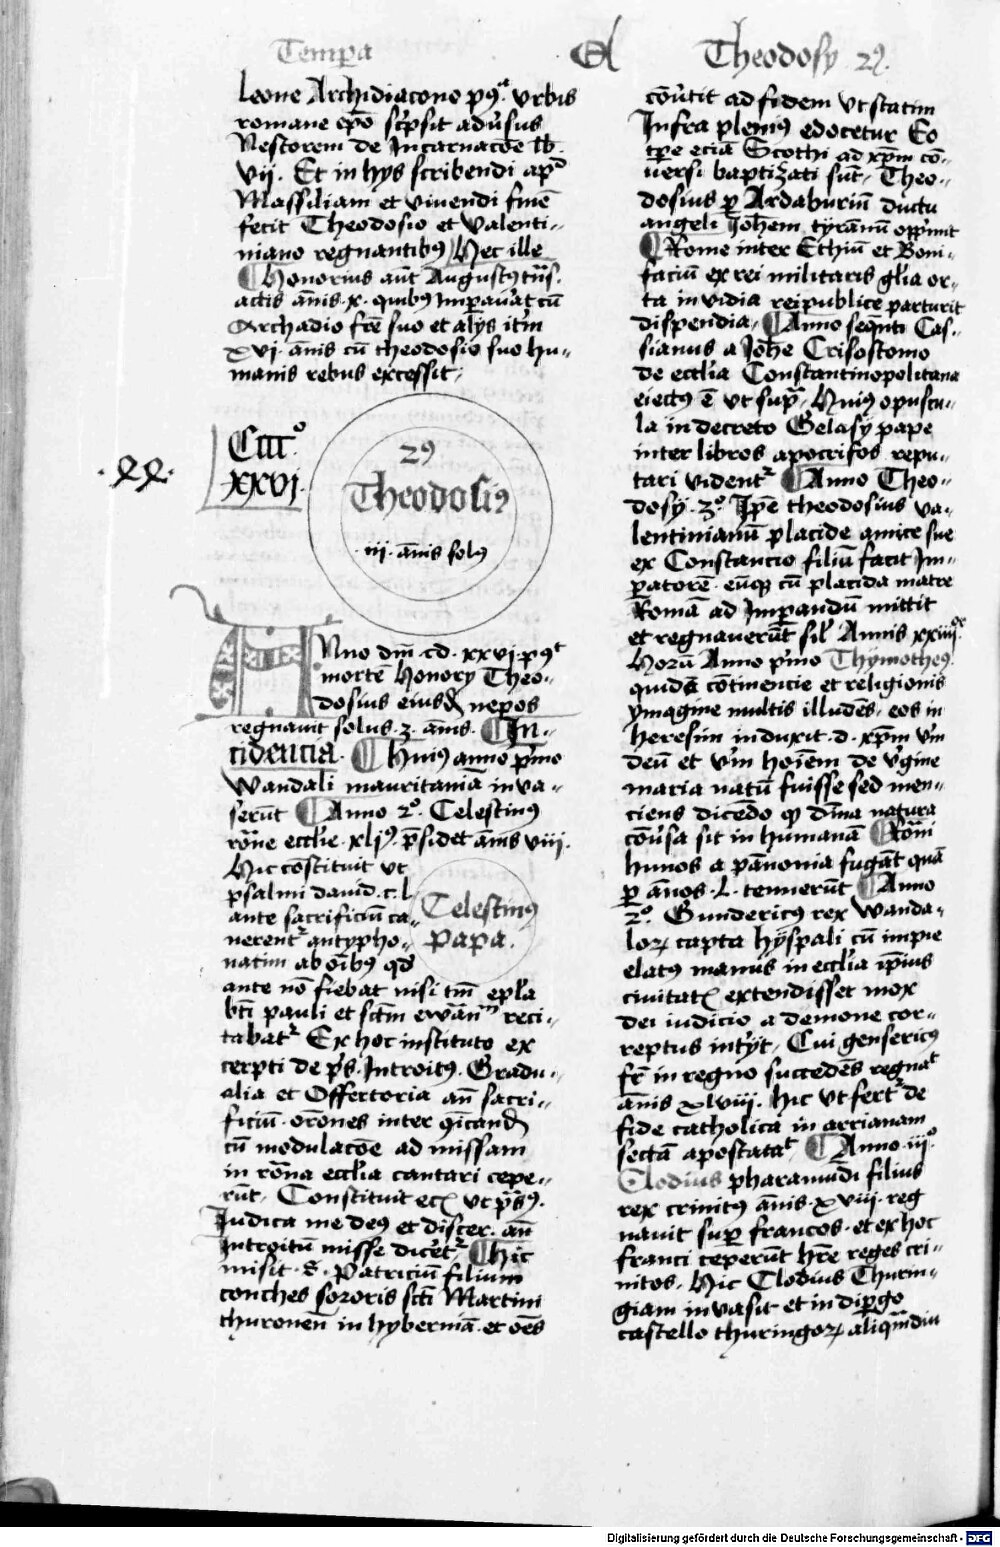 Tempa
Theodosÿ 2⁹.
leone Archidiacono pꝰᵗ vrbis
romane ep̄o sc̄psit aduꝰsus
Nestorem de Incarnacōe lb.
vij. Et in hys scribendi apᵈ
Massiliam et viuendi finē
fecit Theodosio et valenti=
niano regnantibꝰ Hec ille
Honorius aūt Augustꝰ
actis ānis .x. quibꝰ Imꝑauͣt cū
Archadio frē suo et alys itm̄
xvi. ānis cū theodosio suo hu=
manis rebus excessit
CCCC°
xxvj
2⁹
Theodosiꝰ
iij. ānis solꝰ
ANno dm̄ .cd. xxvj. pꝰᵗ
mortē Honorÿ Theo=
dosius eiusdꝭ nepos
regnauit solus .3. ānis. In=
cidencia. Huiꝰ anno pͥmo
Wandali mauritaniā inua=
serūt Anno 2°. Celestinꝰ
rōne eccl̄ie .xljꝰ. p̄sidet ānis viij.
Hic constituit vt
psalmi dauid .c.l
ante sacrificiū ca=
nerentᷣ antypho=
natim ab oībꝰ qd̄
Celestinꝰ
Papa.
ante nō fiebat nisi tm̄ epl̄a
bt̄i pauli et sctm̄ ewān reci=
tabatᷣ Ex hoc instituto ex
cerpti de ps̄. Introitꝰ. Gradu=
alia et Offertoria an̄ sacri=
ficiū. orōnes inter
cū modulacōe ad missam
in rōna eccl̄ia cantari cepe=
rūt, Constituit ecꝭ vt ps̄ꝰ.
Iudica me deꝰ et discer. an̄
Introitū misse dicēt Hic
misit .S. Patriciū filium
conches sororis sct̄i Martini
thuronen̄ in hyberniā. et oēs
cōuͥtit ad fidem vt statim
Infra pleniꝰ edocetur Eo
tp̄e eciā Scothi ad xp̄m cō=
uersi baptizati sūt, Theo=
dosius ꝑ Ardaburiū ductu
angeli Ioh̄em tÿrānū opp̄mit
Rome inter Ethiū et Boni=
faciū ex rei militaris gl̄ia or=
ta inuidia reipublice parturit
dispendia, Anno seqn̄ti Cas=
sianus a Joh̄e Crisostomo
de eccl̄ia Constantinopolitana
eiectꝰ ē vt supᷓ, Huiꝰ opuscu=
la in decreto Gelasÿ pape
inter libros apocrifos repu=
tari videntᷣ Anno Theo=
dosÿ .3°. Ip̄e theodosius va=
lentinianū placide amice sue
ex Constancio filiū facit Im=
ꝑatorē. eūqꝫ cū placida matre
Romā ad Imꝑandū mittit
et regnauerūt sil̄ Annis xxiiij.
Horū Anno pͥmo Thymotheꝰ
quidā cōtinencie et religionis
ymagine multis illudēs, eos in
heresim induxit .d. xp̄m vm̄
deū et vm̄ hoīem de vͥgine
maria natū fuisse sed men=
ciens dicēdo qꝫ diͥna natura
cōuͥsa sit in humanā Rom̄
hunos a pānonia fugāt quā
ꝑ ānos .L. tenuerūt Anno
2°. Gundericꝰ rex Wanda=
loꝝ capta hÿspali cū impie
elatꝰ manus in eccl̄ia ip̄ius
ciuitatꝭ extendisset mox
dei iudicio a demone cor=
reptus intͥyt, Cui gensericꝰ
fr̄ in regno succedēs regnaᵗ
ānis xlviij. hic vt fertᷣ de
fide catholica in arrianam
sectā apostataᵗ, Anno .iij°.
Clodius pharamūdi filius
rex crinitꝰ ānis. xviij. reg
nauit suꝑ francos. et ex hoc
franci ceperūt hr̄e reges cri=
nitos. Hic Clodius Thurin=
giam inuasit et in dispgo
castello thuringoꝝ aliqm̄diu